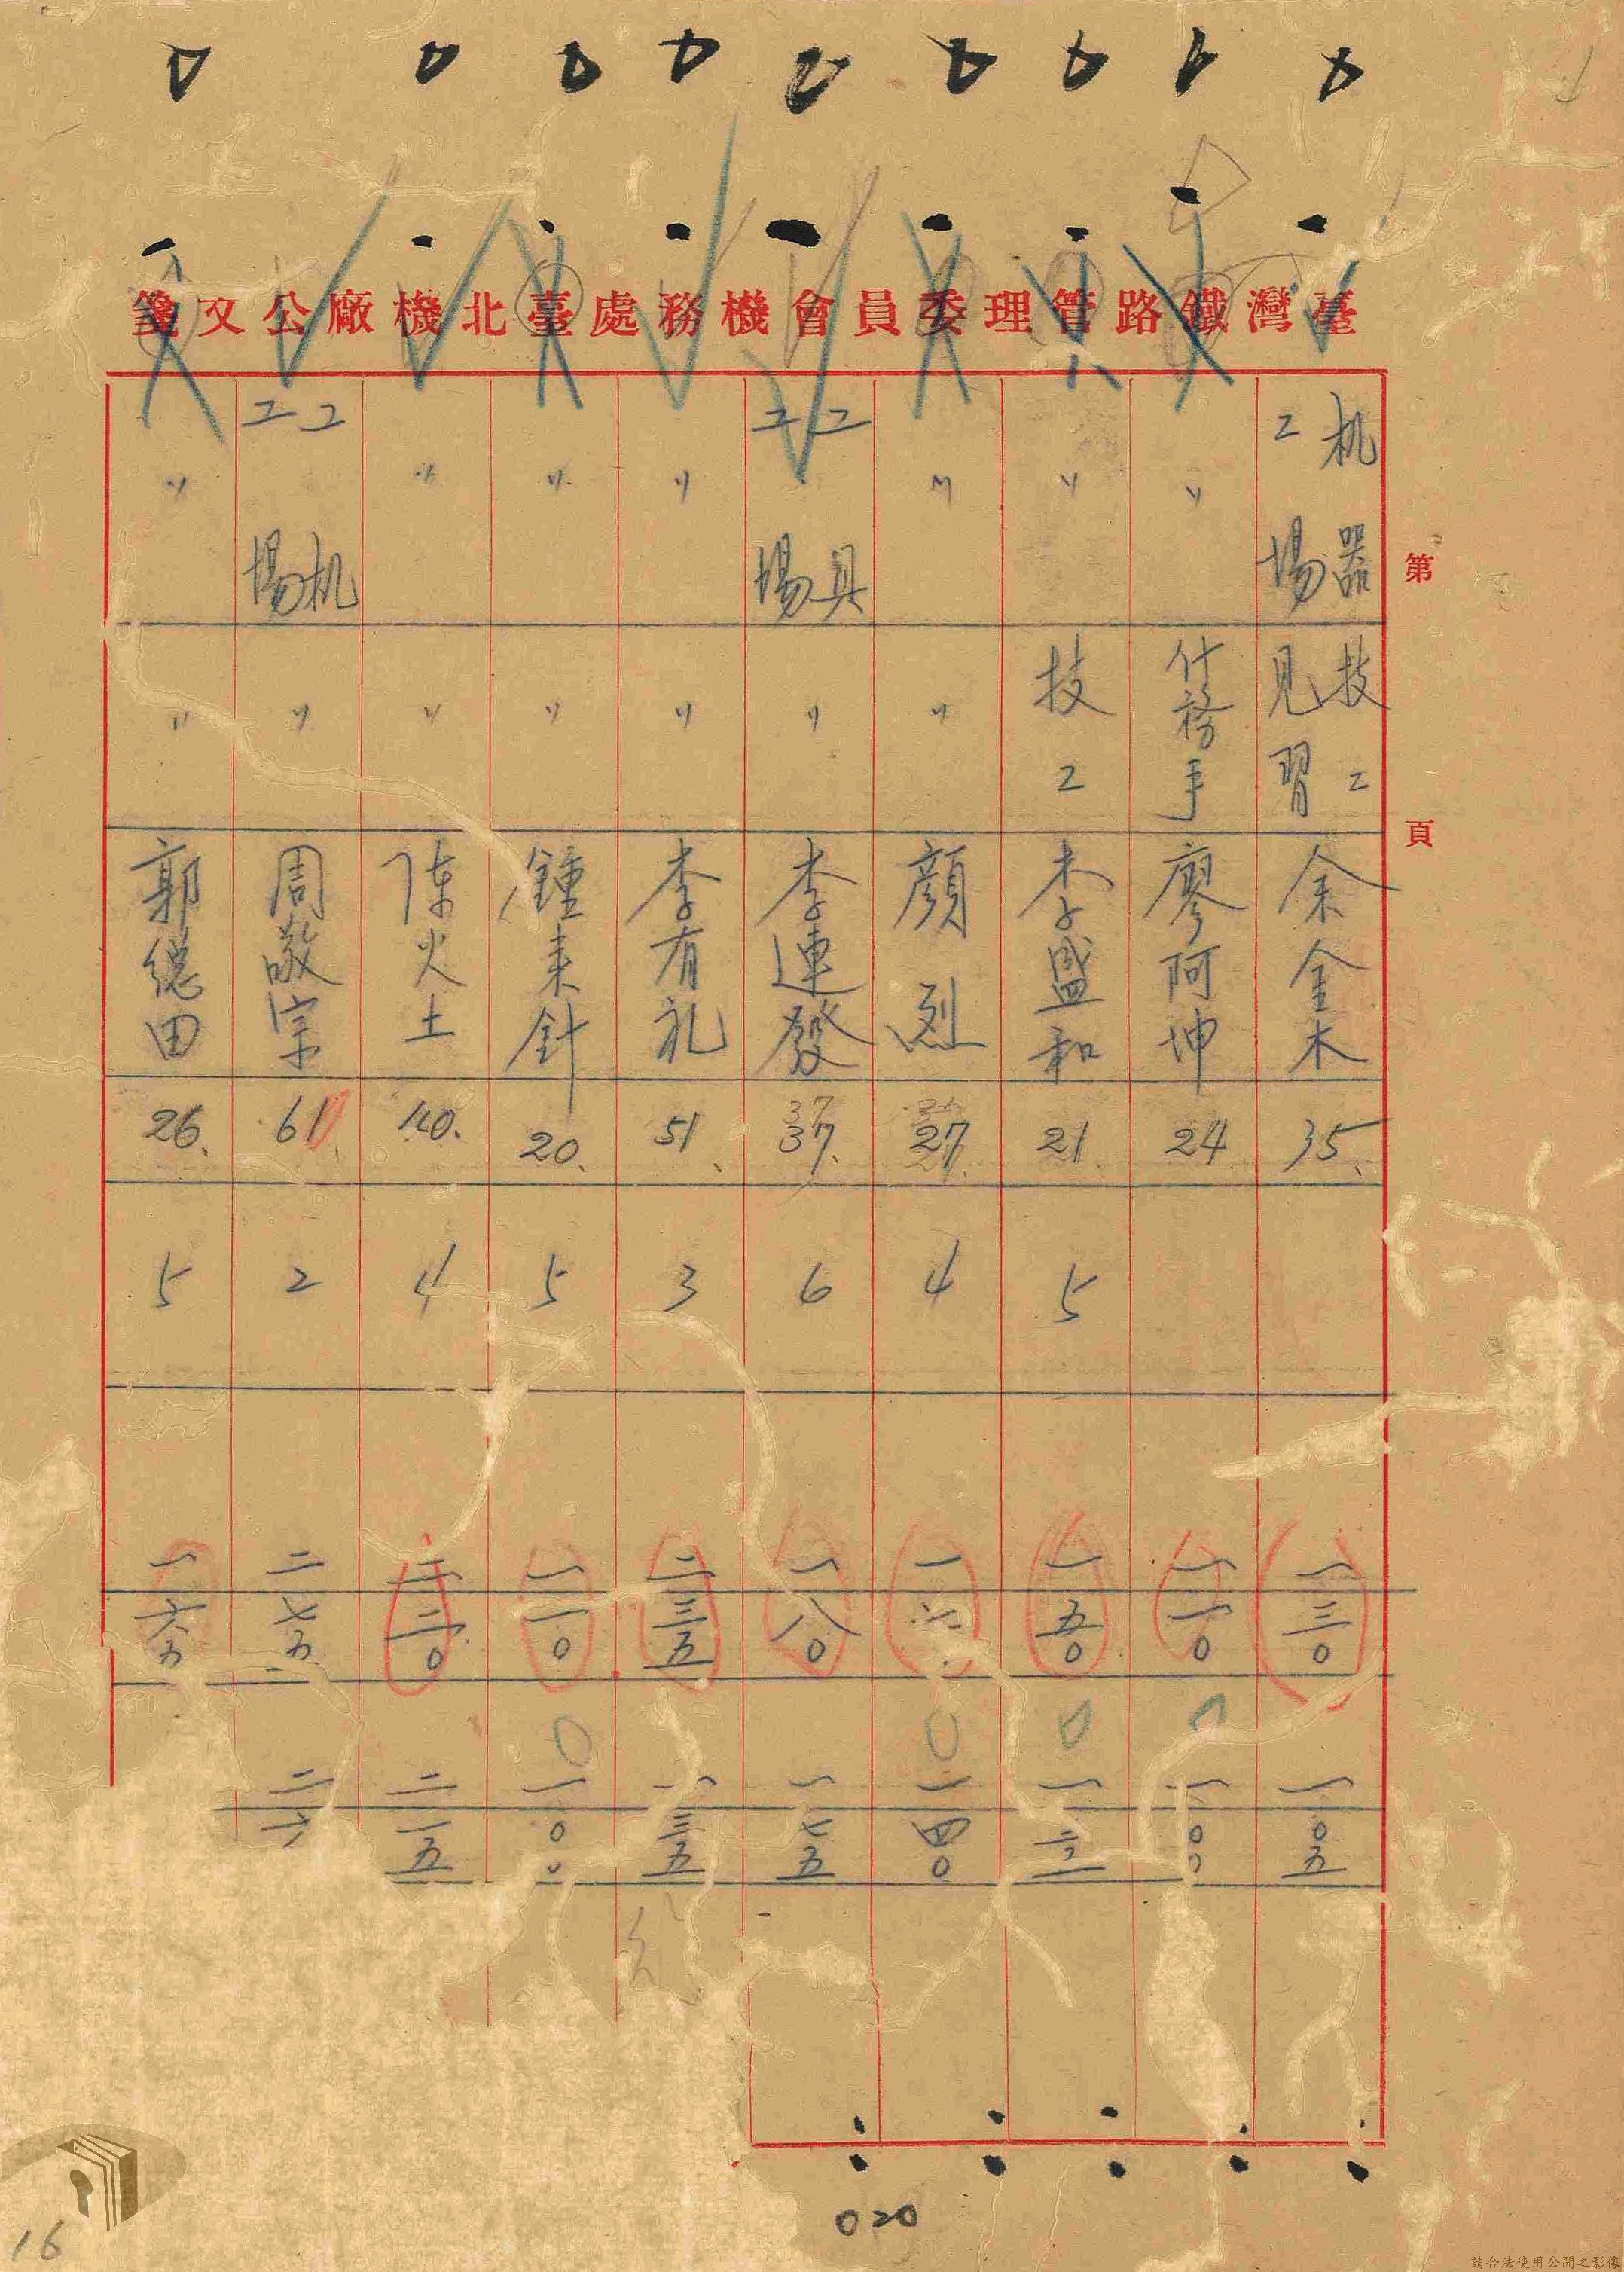 臺灣鐵路管理委員會機務處臺北機廠公文箋
第 頁
机器工場 技工見習 余金木 35. 一三〇 一〇五
〃 什務手 廖阿坤 24 一一〇 一〇〇
〃 技工 李盛和 21 5 一五〇
〃 〃 顏烈 27. 4 一四〇
工具工場 〃 李連發 37 37. 6 一八〇 一七五
〃 〃 李有礼 51. 3 二三五 一三五
〃 〃 鍾来針 20. 5 一一〇 一〇〇
〃 〃 陈火土 40. 4 二二〇 二一五
工机工場 〃 周敬宗 61 2 二七五
〃 〃 郭総田 26. 5 一六五
020
16
請合法使用公開之影像